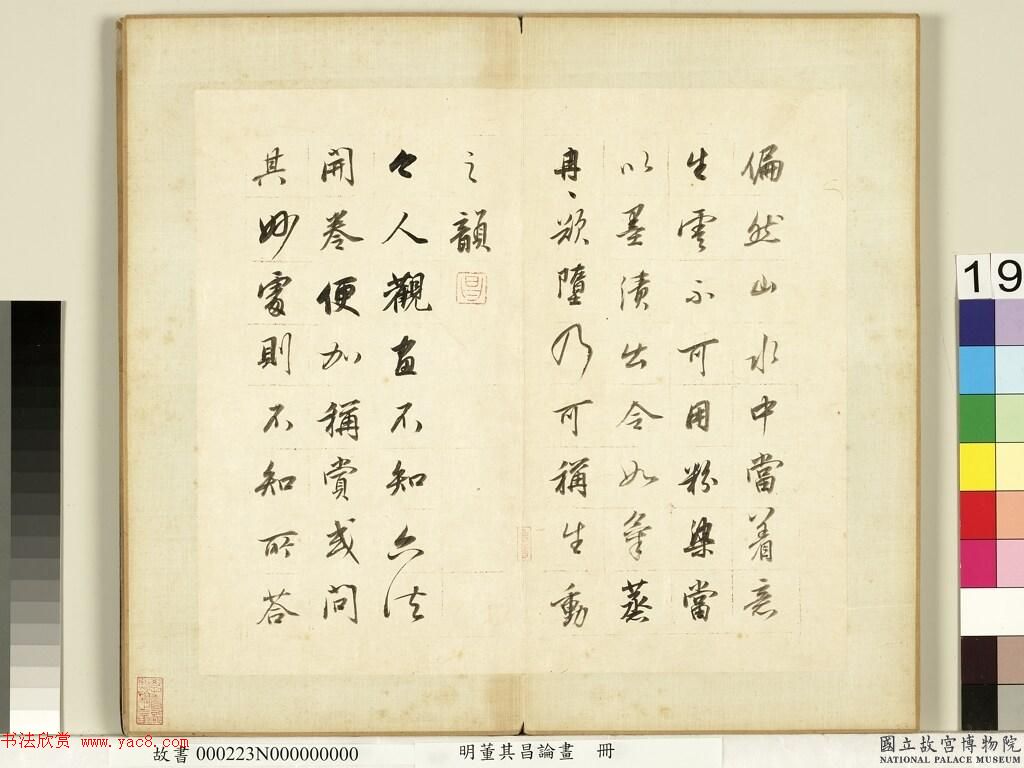 偏然山水中當着意
生雲不可用粉染當
以墨漬出令如氣蒸
冉〻欲墮乃可稱生動
之韻
昌
今人觀畫不知六法
開卷便加稱賞或問
其妙處則不知所答
19
书法欣赏 www.yac8.com
故書 000223N000000000
明董其昌論畫 冊
國立故宮博物院
NATIONAL PALACE MUSEUM